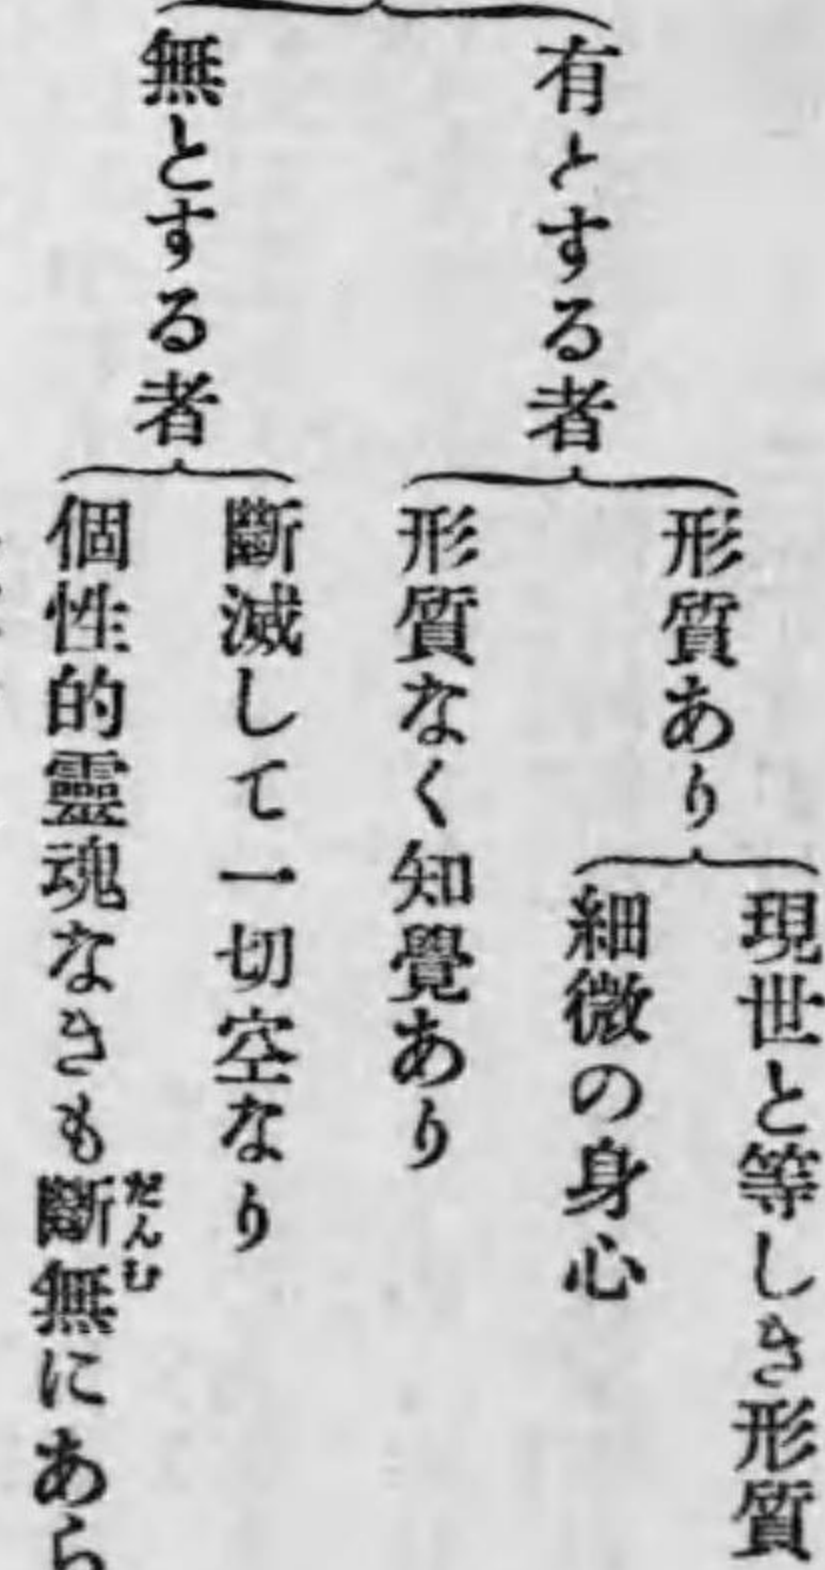 有とする者
形質あり
現世と等しき形質
細微の身心
形質なく知覺あり
無とする者
斷滅して一切空なり
個性的靈魂なきも斷無にあら
だんむ